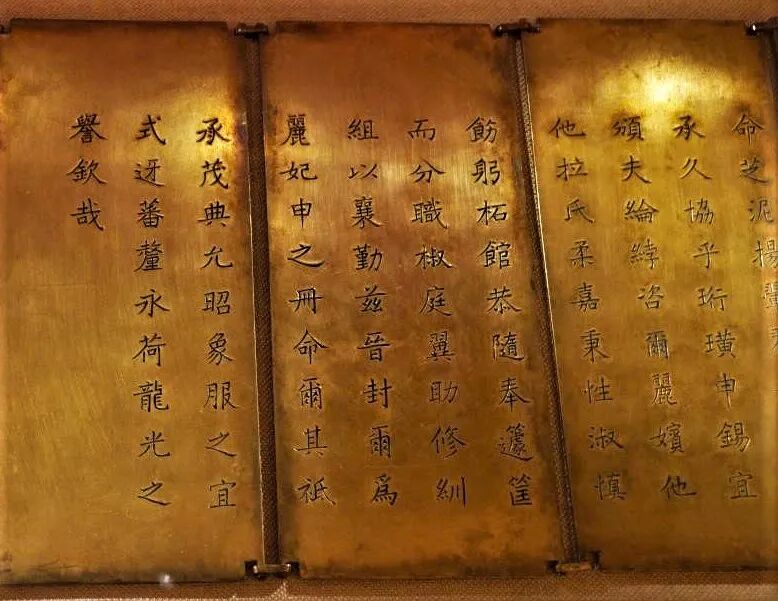 命芝泥揚
承久協乎珩璜申錫宜
頒夫綸綍咨爾麗嬪他
他拉氏柔嘉秉性淑慎
飭躬柘館恭隨奉籧筐
而分職椒庭翼助修紃
組以襄勤茲晉封爾爲
麗妃申之冊命爾其祇
承茂典允昭象服之宜
式迓蕃釐永荷龍光之
譽欽哉